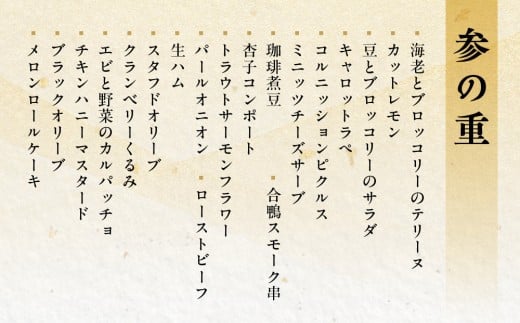 参の重
海老とブロッコリーのテリーヌ
カットレモン
豆とブロッコリーのサラダ
キャロットラペ
コルニッションピクルス
ミニッツチーズサーブ
珈琲煮豆 合鴨スモーク串
杏子コンポート
トラウトサーモンフラワー
パールオニオン ローストビーフ
生ハム
スタフドオリーブ
クランベリーくるみ
エビと野菜のカルパッチョ
チキンハニーマスタード
ブラックオリーブ
メロンロールケーキ